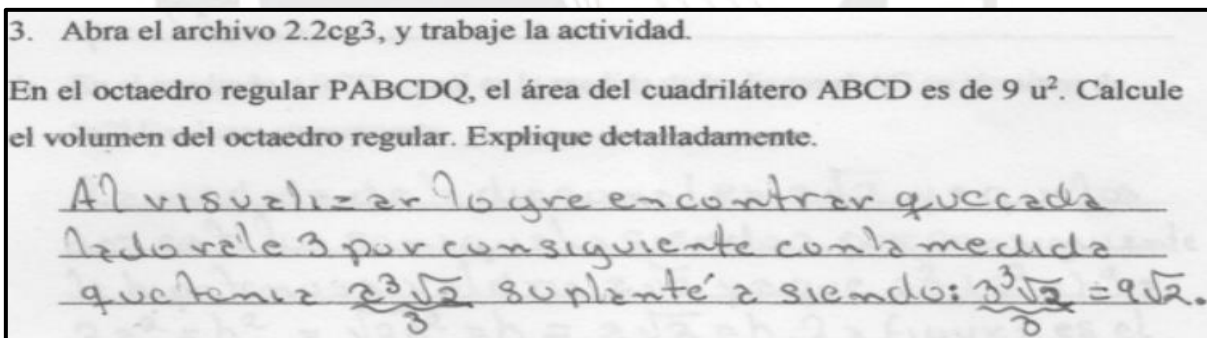 3. Abra el archivo 2.2cg3, y trabaje la actividad.
En el octaedro regular PABCDQ, el área del cuadrilátero ABCD es de 9 u². Calcule
el volumen del octaedro regular. Explique detalladamente.
Al visualizar logre encontrar que cada
lado vale 3 por consiguiente con la medida
que tenia a³√2/3 suplanté a siendo: 3³√2/3 = 9√2.